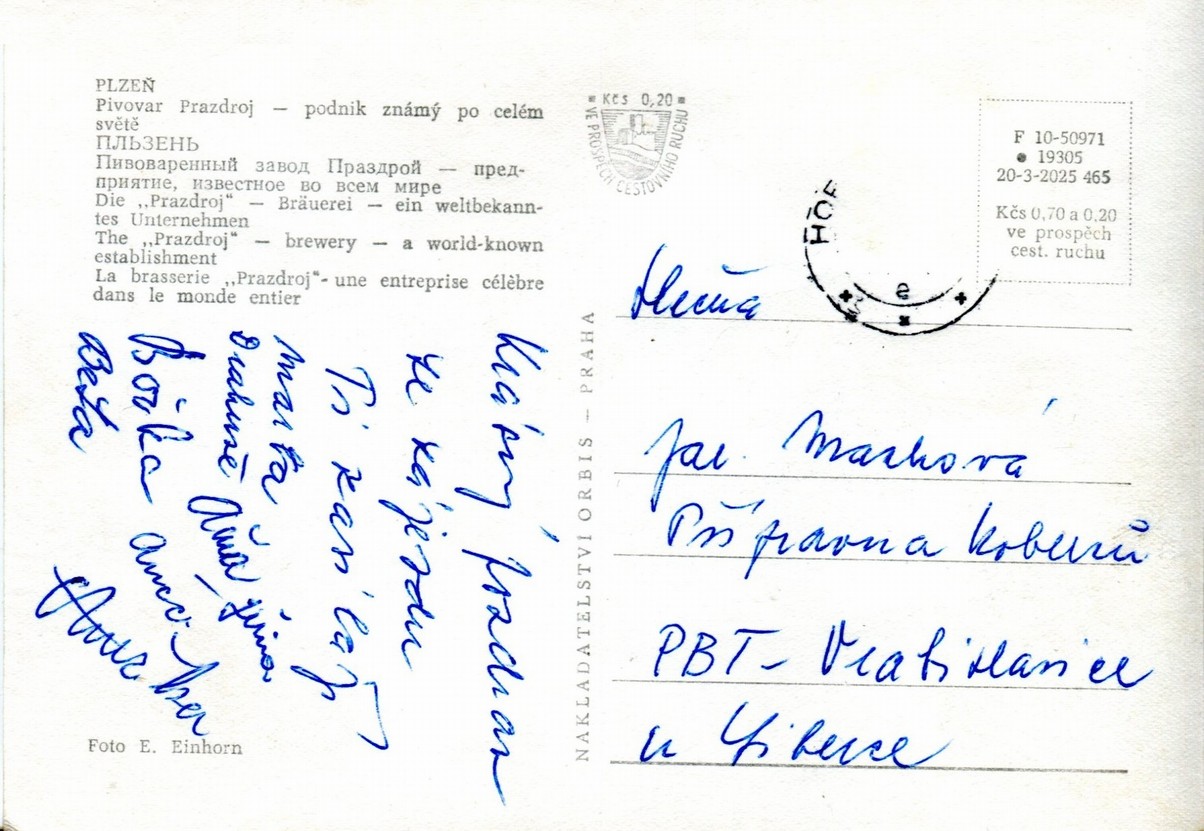 PLZEŇ
Pivovar Prazdroj — podnik známý po celém
světě
ПЛЬЗЕНЬ
Пивоваренный завод Праздрой — пред-
приятие, известное во всем мире
Die „Prazdroj“ — Bräuerei — ein weltbekann-
tes Unternehmen
The „Prazdroj“ — brewery — a world-known
establishment
La brasserie „Prazdroj“ - une entreprise célèbre
dans le monde entier
Krásný pozdrav
ze zájezdu
Ti zasílají
Marta
Drahuše Jiřina
Boška
Beta
Foto E. Einhorn
NAKLADATELSTVÍ ORBIS — PRAHA
Kčs 0,20
VE PROSPĚCH CESTOVNÍHO RUCHU
F 10-50971
19305
20-3-2025 465
Kčs 0,70 a 0,20
ve prospěch
cest. ruchu
HOŘ
Slečna
Jar. Machová
Přípravna koberců
PBT - Vratislavice
u Liberce